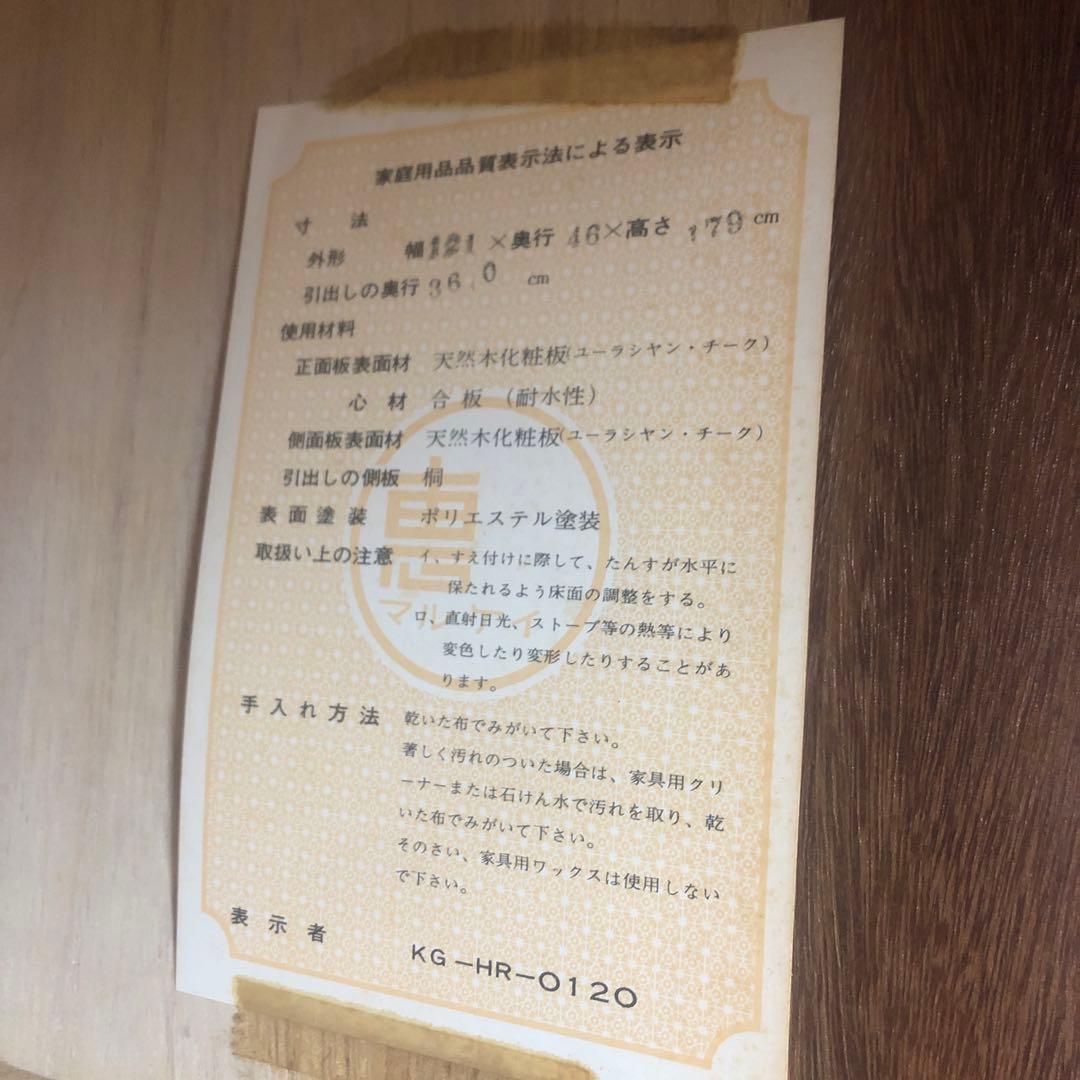 家庭用品品質表示法による表示
寸法
外形 幅121×奥行46×高さ179cm
引出しの奥行36.0cm
使用材料
正面板表面材 天然木化粧板(ユーラシヤン・チーク)
心材 合板(耐水性)
側面板表面材 天然木化粧板(ユーラシヤン・チーク)
引出しの側板 桐
表面塗装 ポリエステル塗装
取扱い上の注意 イ、すえ付けに際して、たんすが水平に
保たれるよう床面の調整をする。
ロ、直射日光、ストーブ等の熱等により
変色したり変形したりすることがあ
ります。
手入れ方法 乾いた布でみがいて下さい。
著しく汚れのついた場合は、家具用クリ
ーナーまたは石けん水で汚れを取り、乾
いた布でみがいて下さい。
そのさい、家具用ワックスは使用しない
で下さい。
表示者 KG-HR-0120
恵
マルケイ